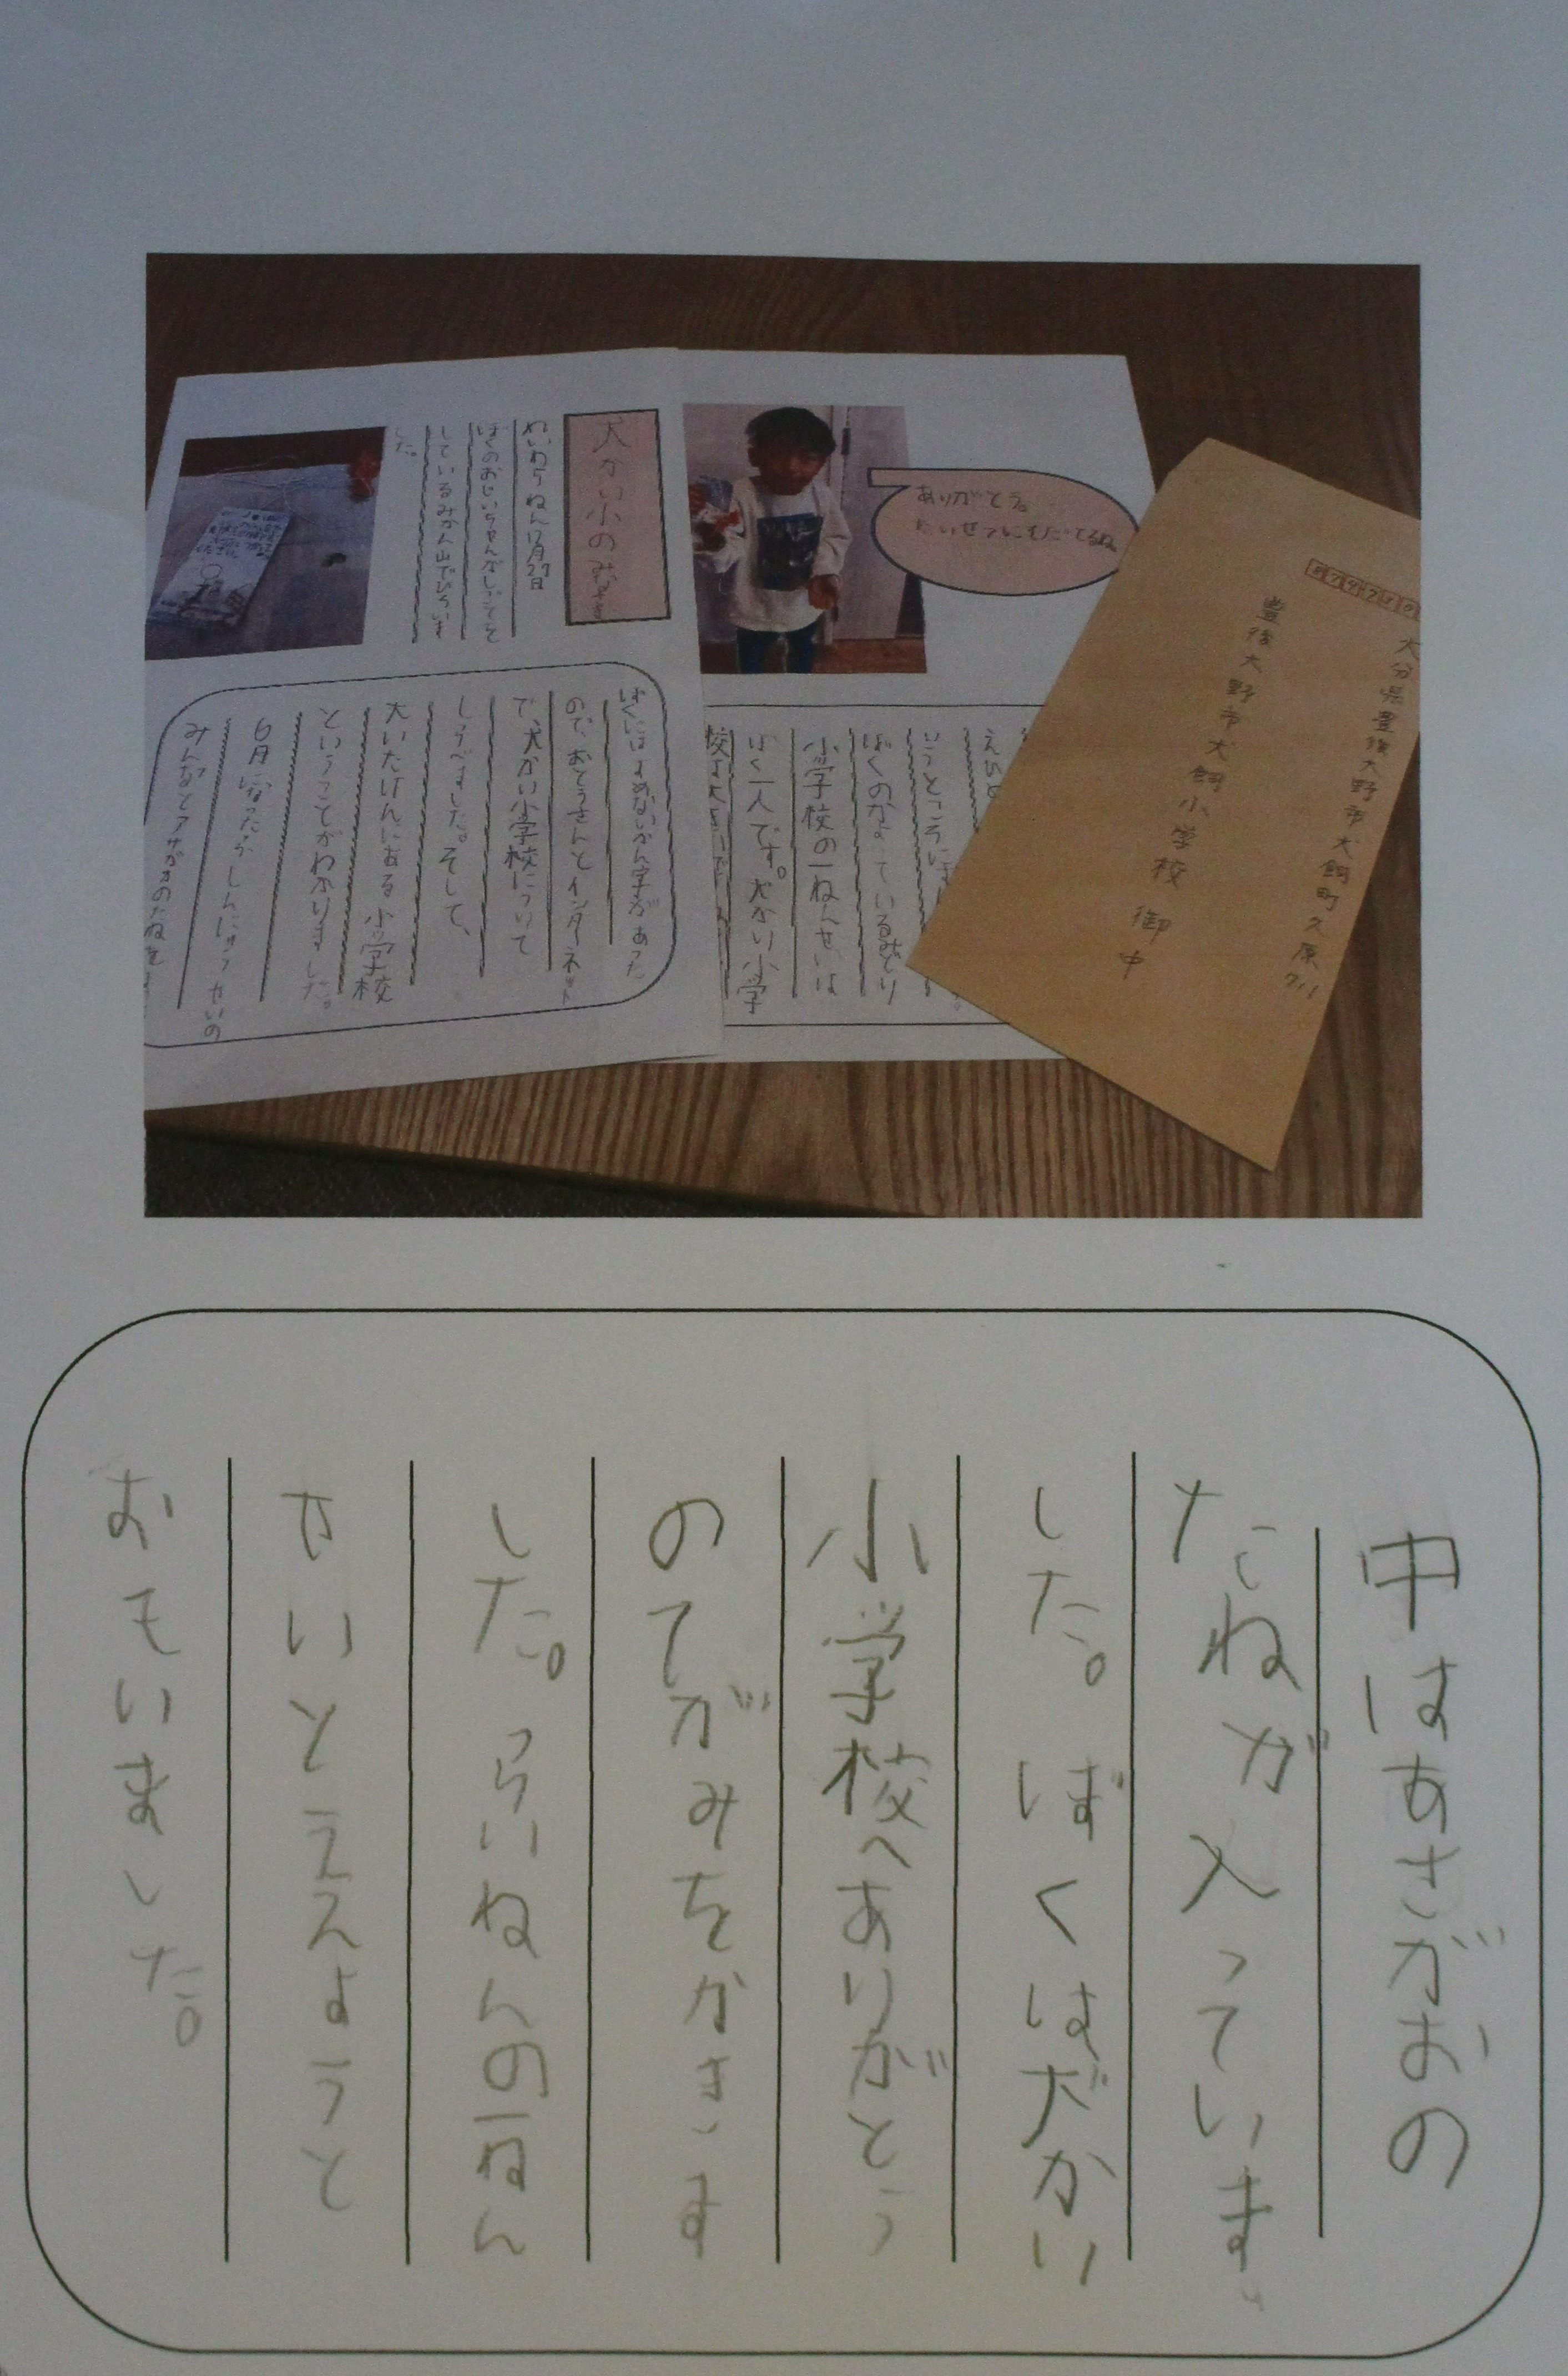 犬かい小のみなさま
ぼくのおじいちゃんが
しているみかん山でひろいま
した。
ありがとう。
たいせつにそだてるね。
ぼくにはよめないかん字があった
ので、おとうさんとインターネット
で、犬かい小学校について
しらべました。そして、
大いたけんにある小学校
ということがわかりました。
6月になったら、しんにゅうせいの
みんなとアサガオのたねを
いうところに
小学校の一ねんせいは
ぼく一人です。犬かい小学
大分県豊後大野市犬飼町久原
豊後大野市犬飼小学校 御中
中はあさがおの
たねが入っていま
した。ぼくは犬かい
小学校へありがとう
のてがみをかきま
した。らいねんの一ねん
せいとうえようと
おもいました。